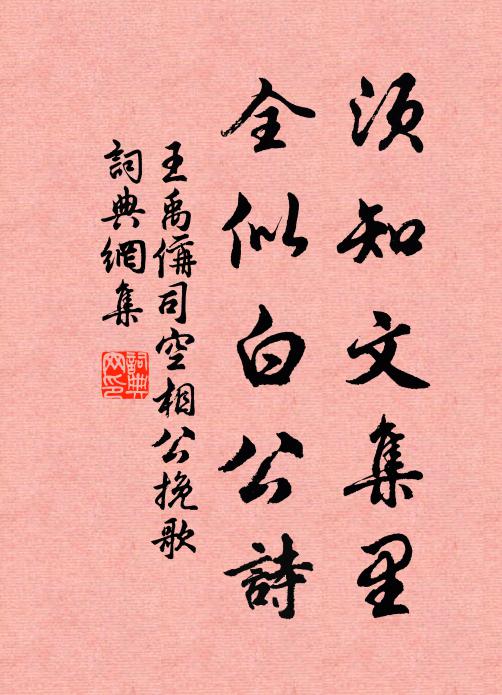 须知文集里
全似白公詩
王禹偁司空相公挽歌
詞典網集
詞典网印